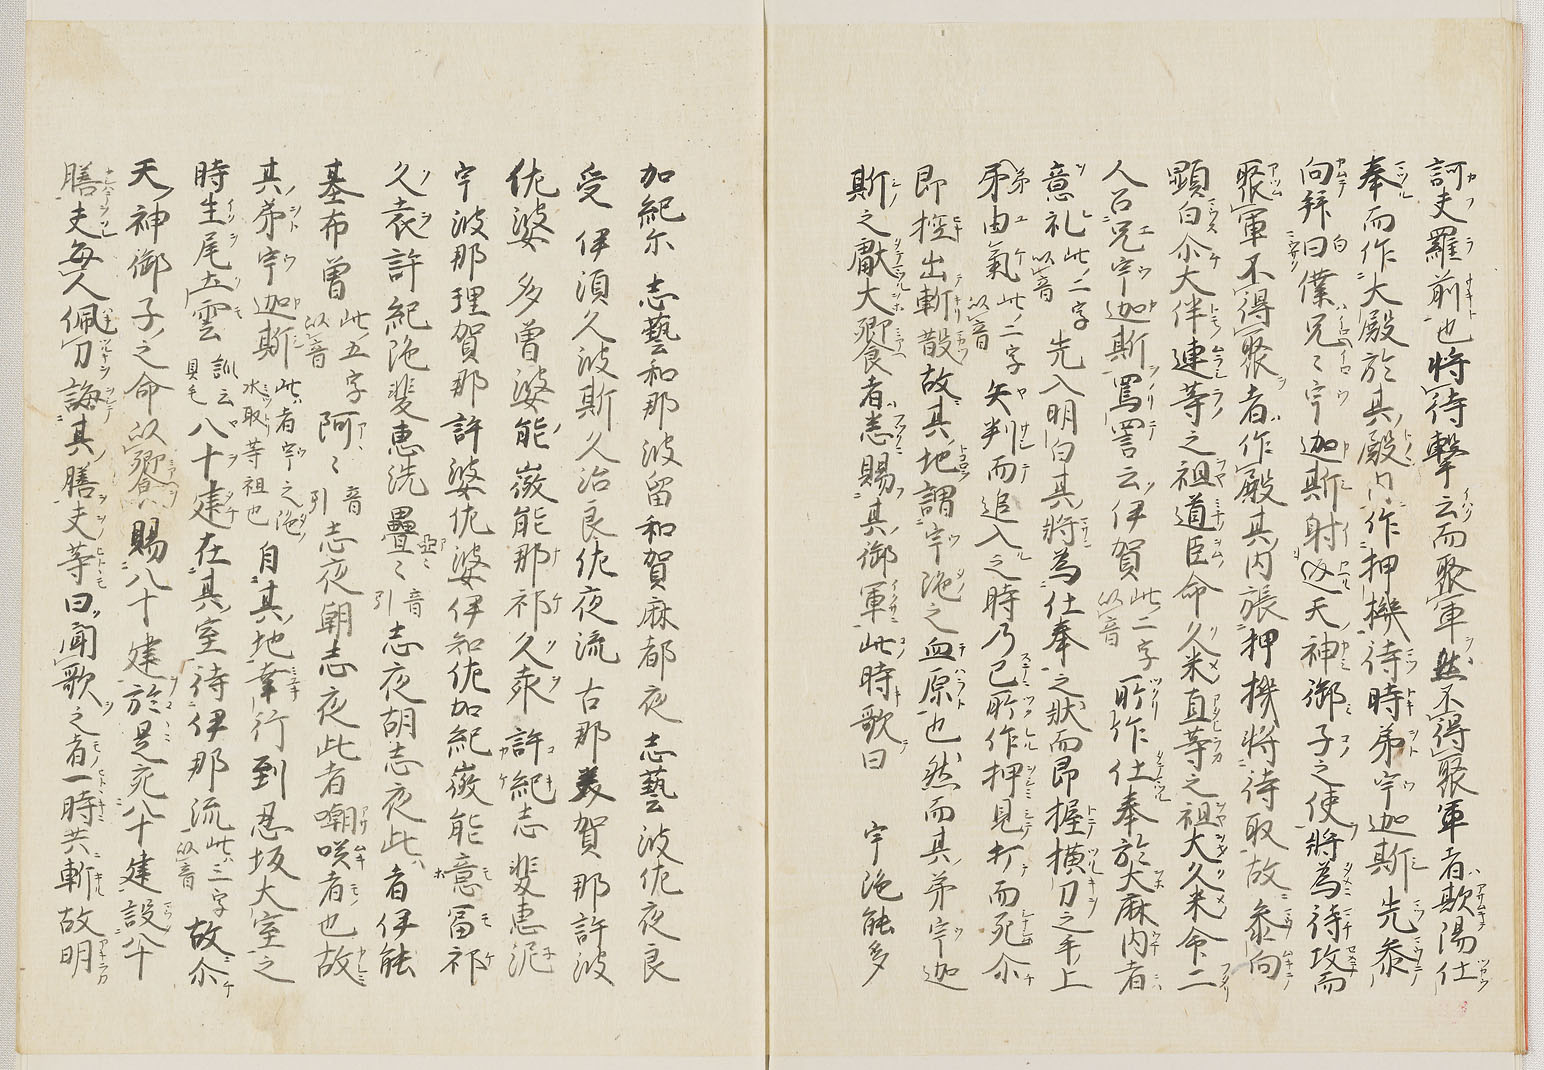 訶夫羅前也將待擊云而聚軍然不得聚軍者欺陽仕
奉而作大殿於其殿內作押機待時弟宇迦斯先參
向拜曰僕兄〻宇迦斯射返天神御子之使將為待攻而
聚軍不得聚者作殿其內張押機將待取故參向
顕白尒大伴連等之祖道臣命久米直等之祖大久米命二
人召兄宇迦斯罵詈云伊賀此二字以音所作仕奉於大麻內者
意礼此二字以音先入明白其將為仕奉之狀而即握横刀之手上
矛由氣此二字以音矢判而追入之時乃己所作押見打而死尒
即控出斬散故其地謂宇沲之血原也然而其弟宇迦
斯之獻大饗者悉賜其御軍此時歌曰　宇沲能多
加紀尓 志藝和那波留和賀麻都夜 志藝波佐夜良
受 伊湏久波斯久治良佐夜流 古那美賀那許波
佐婆 多曽婆能微能那祁久袁 許紀志斐惠泥
宇波那理賀那許婆佐婆伊知佐加紀微能意冨祁
久袁許紀沲斐惠洗疊〻音引志夜胡志夜此者伊能
基布曽此五字以音阿〻音引志夜朝志夜此者嘲咲者也故
其弟宇迦斯此者宇沲水取等祖也自其地幸行到忍坂大室之
時生尾𡈽雲訓云具毛八十建在其室待伊那流此三字以音故尒
天神御子之命以饗賜八十建於是宛八十建設八十
膳夫每人佩刀誨其膳夫等曰聞歌之者一時共斬故明